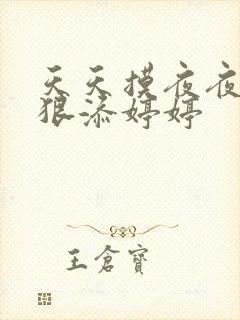 天天摸夜夜
狠添婷婷
王倉寶